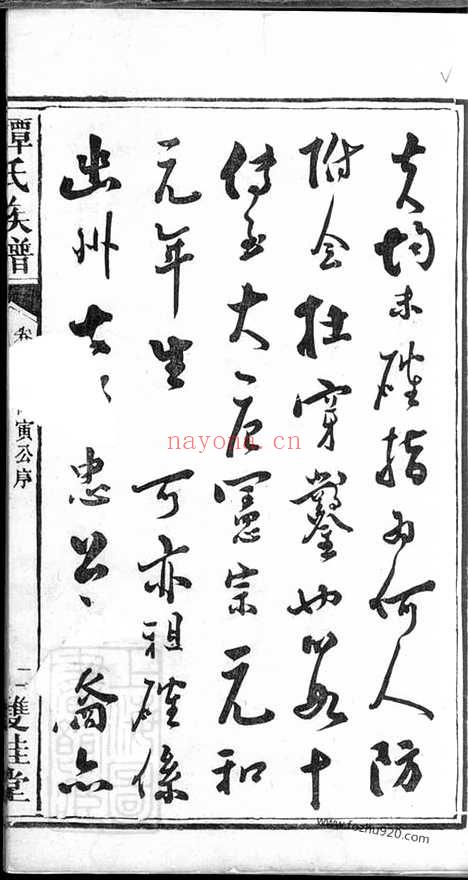 夫均未確指為何人防
附會杜穿鑿也以數十
傳至大唐憲宗元和
元年生可亦祖確係
出州
忠公裔亦
譚氏族譜
卷
寅公序
二
雙桂堂
nayona.cn
www.fozhu920.com